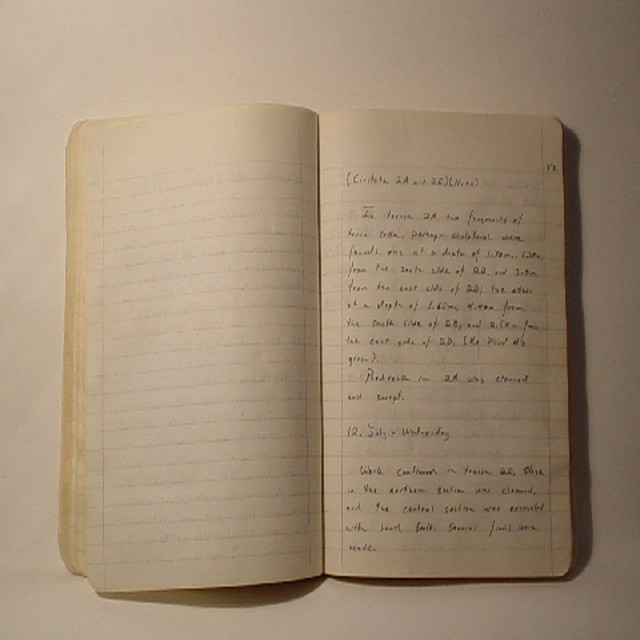 (Civitate 2A and 2D)
In trench 2A two fragments of
terra cotta, perhaps sculptural were
found; one at a depth of
from the south side of 2D and
from the east side of 2D; the other
at a depth of 1.65m, from
the south side of 2D, and 2.5m from
the east side of 2D.
green).
Bedrock in 2A was cleaned
and swept.
12. July - Wednesday
Work continued in trench 2D.
in the northern section was cleaned,
and the central section was excavated
with hand tools. Several finds were
made.